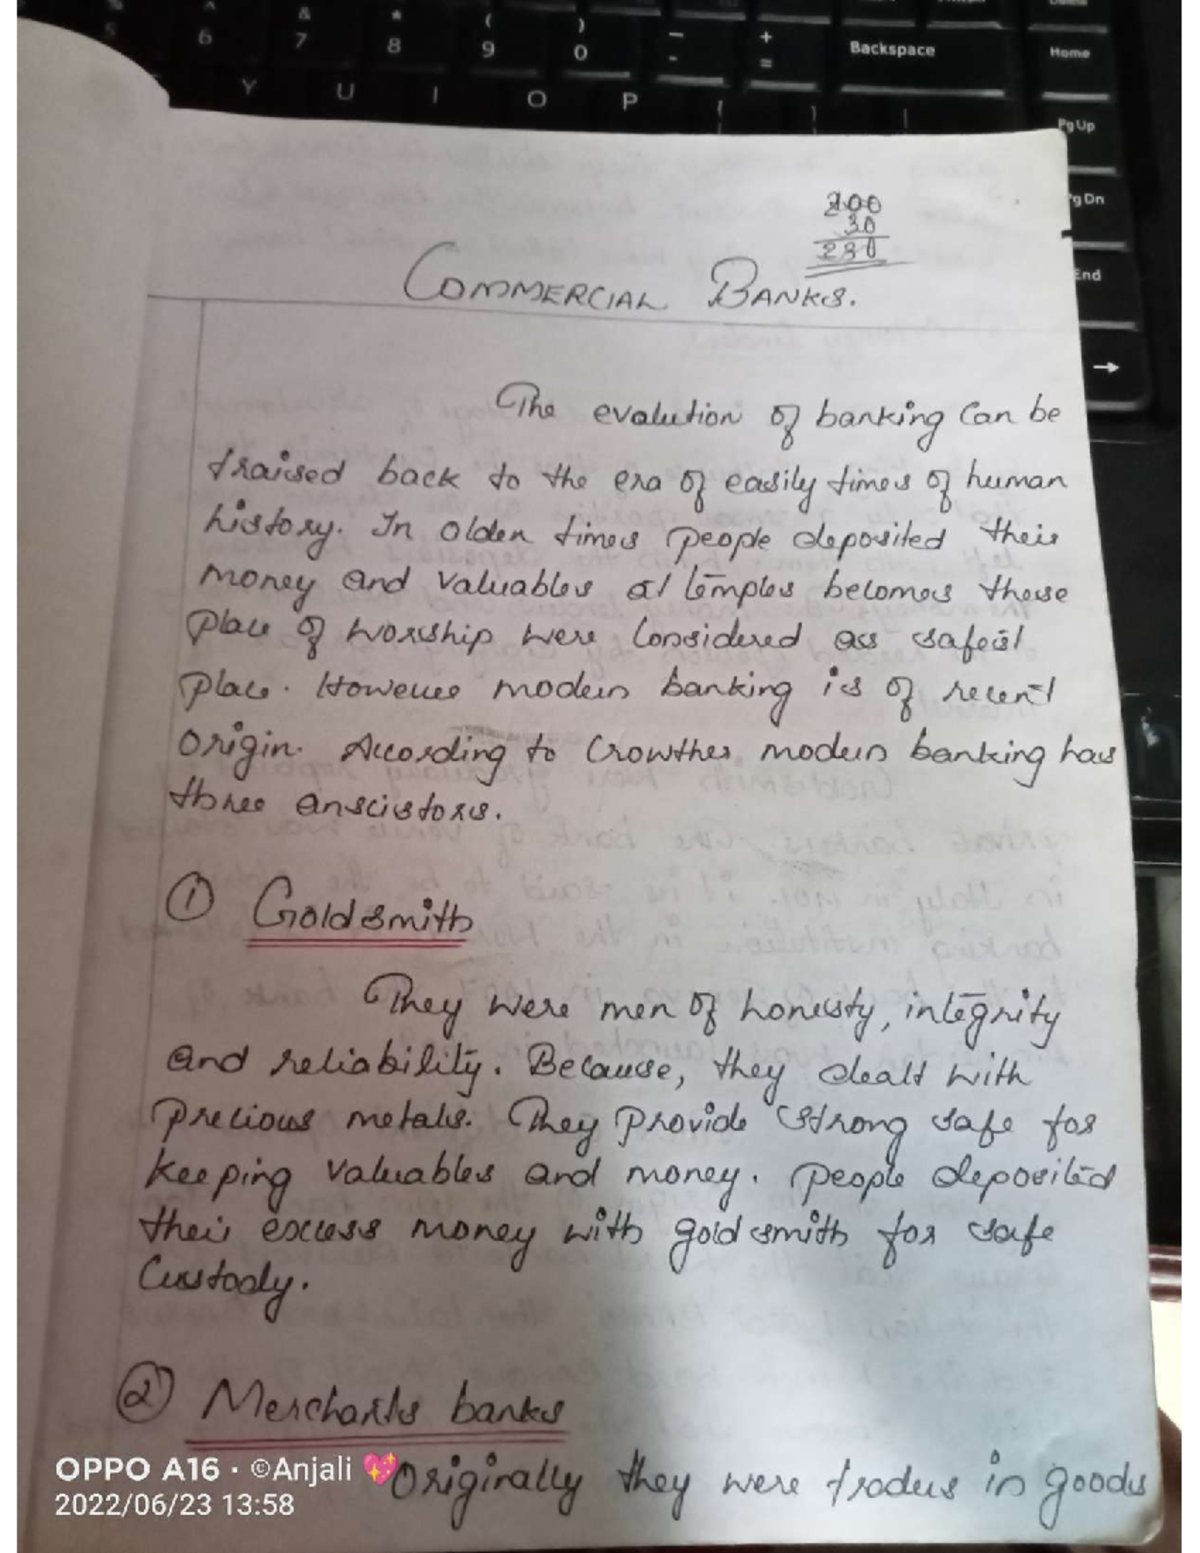 % ^ & * ( ) _ + Delete
5 6 7 8 9 0 - = Backspace Home
Y U I O P { } | Pg Up
Pg Dn
End
→
200
30
230
COMMERCIAL BANKS.
The evalution of banking Can be
traised back to the era of easily times of human
history. In olden times people deposited their
money and valuables at temples becomes these
place of worship were Considered as safest
place. However modern banking is of recent
origin. According to Crowther modern banking has
three anscistors.
① Goldsmith
They were men of honesty, integrity
and reliability. Because, they dealt with
precious metals. They provide strong safe for
keeping valuables and money. people deposited
their excess money with goldsmith for safe
Custody.
② Merchants banks
Originally they were traders in goods
OPPO A16 · ©Anjali 💖
2022/06/23 13:58